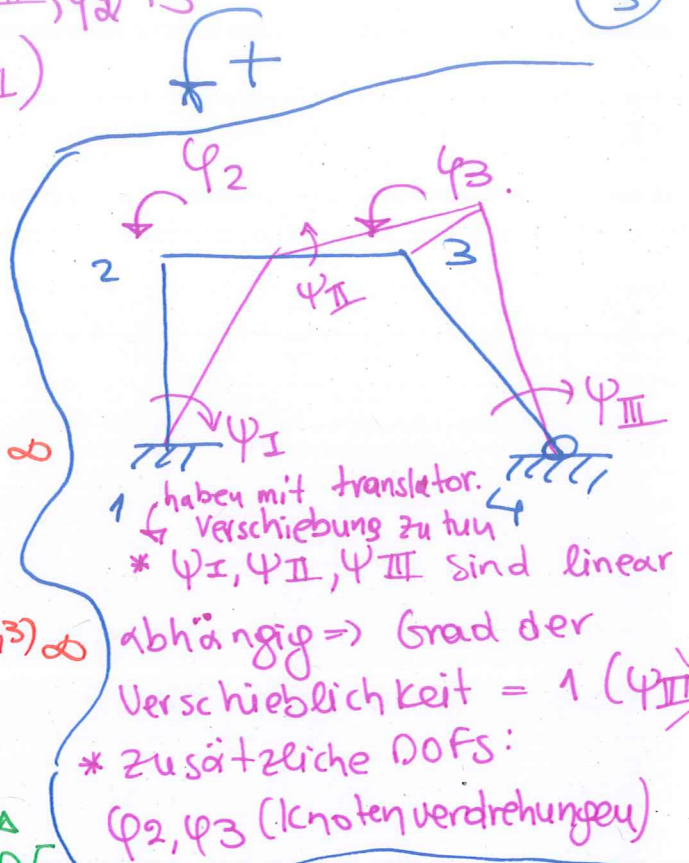 3
+
φ2
φ3.
2
3
ψII
ψI
ψIII
∞
1
4
haben mit translator.
Verschiebung zu tun
* ψI, ψII, ψIII sind linear
abhängig => Grad der
Verschieblichkeit = 1 (ψIII
* zusätzliche DOFs:
φ2, φ3 (Knotenverdrehungen)
,3) ∞